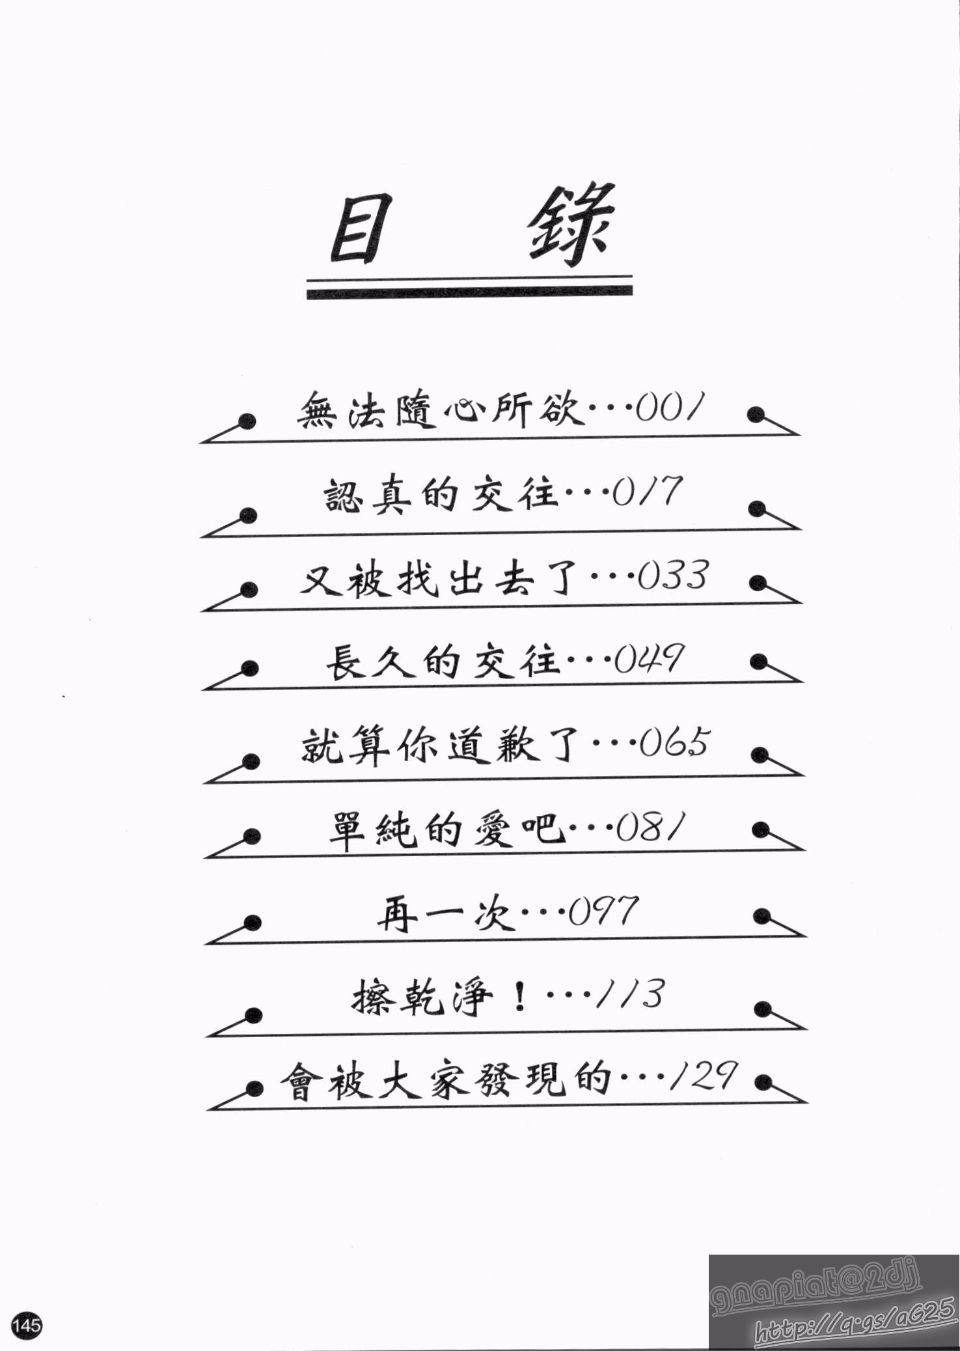 目 錄
無法隨心所欲···001
認真的交往···017
又被找出去了···033
長久的交往···049
就算你道歉了···065
單純的愛吧···081
再一次···097
擦乾淨！···113
會被大家發現的···129
145
gnapiat@2dj
http://q.gs/aG25